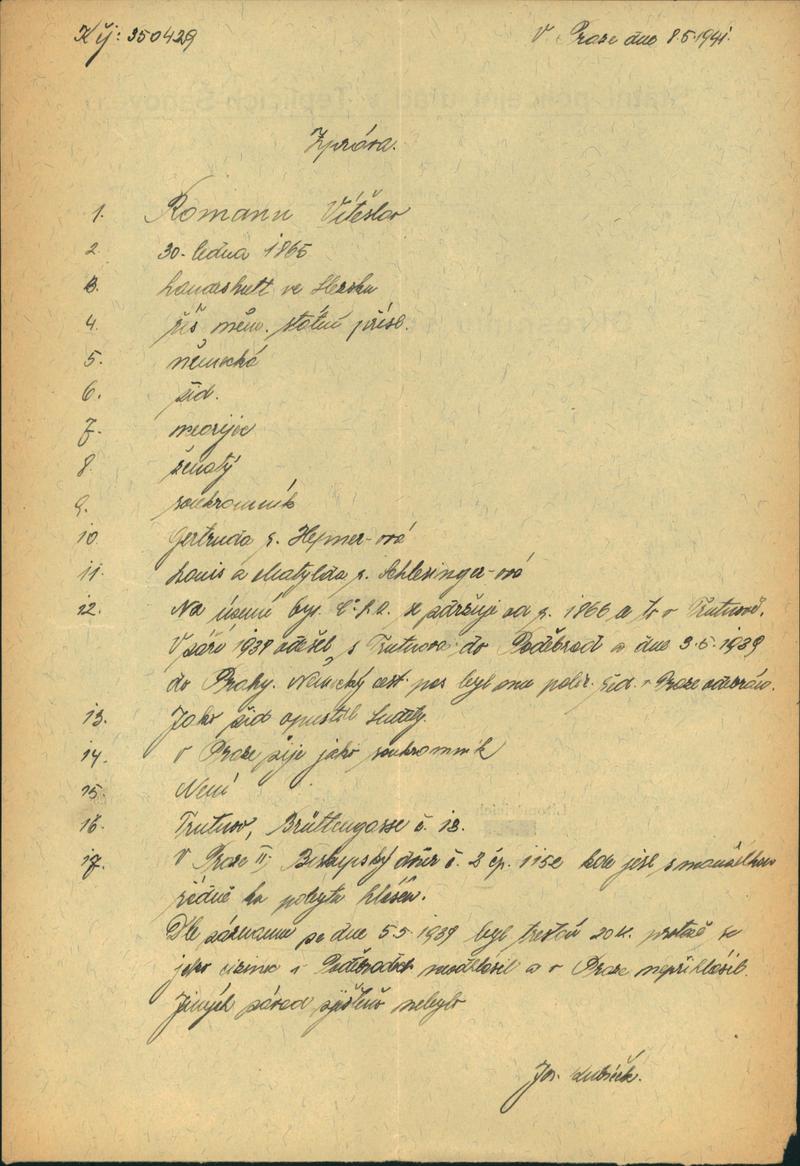 Kčj: 350429
V Praze dne 8.5.1941.
Zpráva.
1. Romann Vítěslav
2. 30. ledna 1865
3. Landeshutt ve Slezsku
4. říš. něm. státní přísl.
5. německá
6. žid.
7. neovijov
8. ženatý
9. soukromník
10. Gertruda r. Hepner-ová
11. Louis a Matylda r. Schlesinger-ová
12. Na území býv. Č.S.R. se zdržuje od r. 1866 a to v Trutnově.
V září 1938 odešel s Trutnova do Poděbrad a dne 3.5.1939
do Prahy. Německý cest. pas byl mu polic. řed. v Praze odebrán.
13. Jako žid opustil Sudety.
14. v Praze žije jako soukromník
15. Není
16. Trutnov, Brüttengasse č. 13.
17. V Praze II, Biskupský dvůr č. 8 čp. 1152 kde jest s manželkou
řádně ku pobytu hlášen.
Dle záznamu ze dne 5.5.1939 byl trestán 20 K. protože se
jako cizinec v Poděbradech neodhlásil a v Praze nepřihlásil.
Jiných závad zjištěno nebylo
Jos.